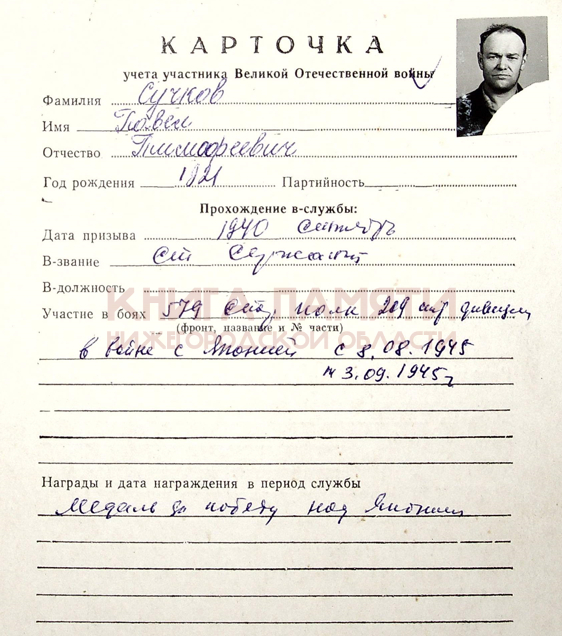 КАРТОЧКА
учета участника Великой Отечественной войны
Фамилия Сучков
Имя Павел
Отчество Тимофеевич
Год рождения 1921 Партийность
Прохождение в-службы:
Дата призыва 1940 сентябрь
В-звание ст сержант
В-должность
КНИГА ПАМЯТИ
Участие в боях 579 стр. полк 209 стр дивизии
(фронт, название и № части)
НИЖЕГОРОДСКОЙ ОБЛАСТИ
в войне с Японией с 8.08.1945
по 3.09.1945г
Награды и дата награждения в период службы
Медаль за победу над Японией